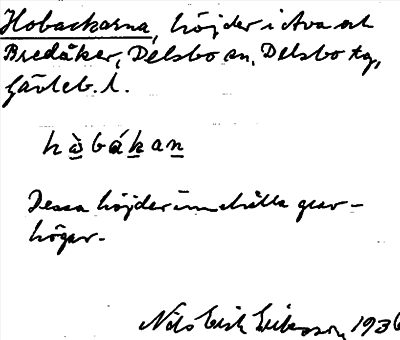 Hobackarna, höjder i Ava och
Bredåker, Delsbo sn, Delsbo tg,
Gävleb. l.
hὸ̲bák̲an̲
Dessa höjder innehålla grav-
högar.
Nils Erik Eriksson 1936